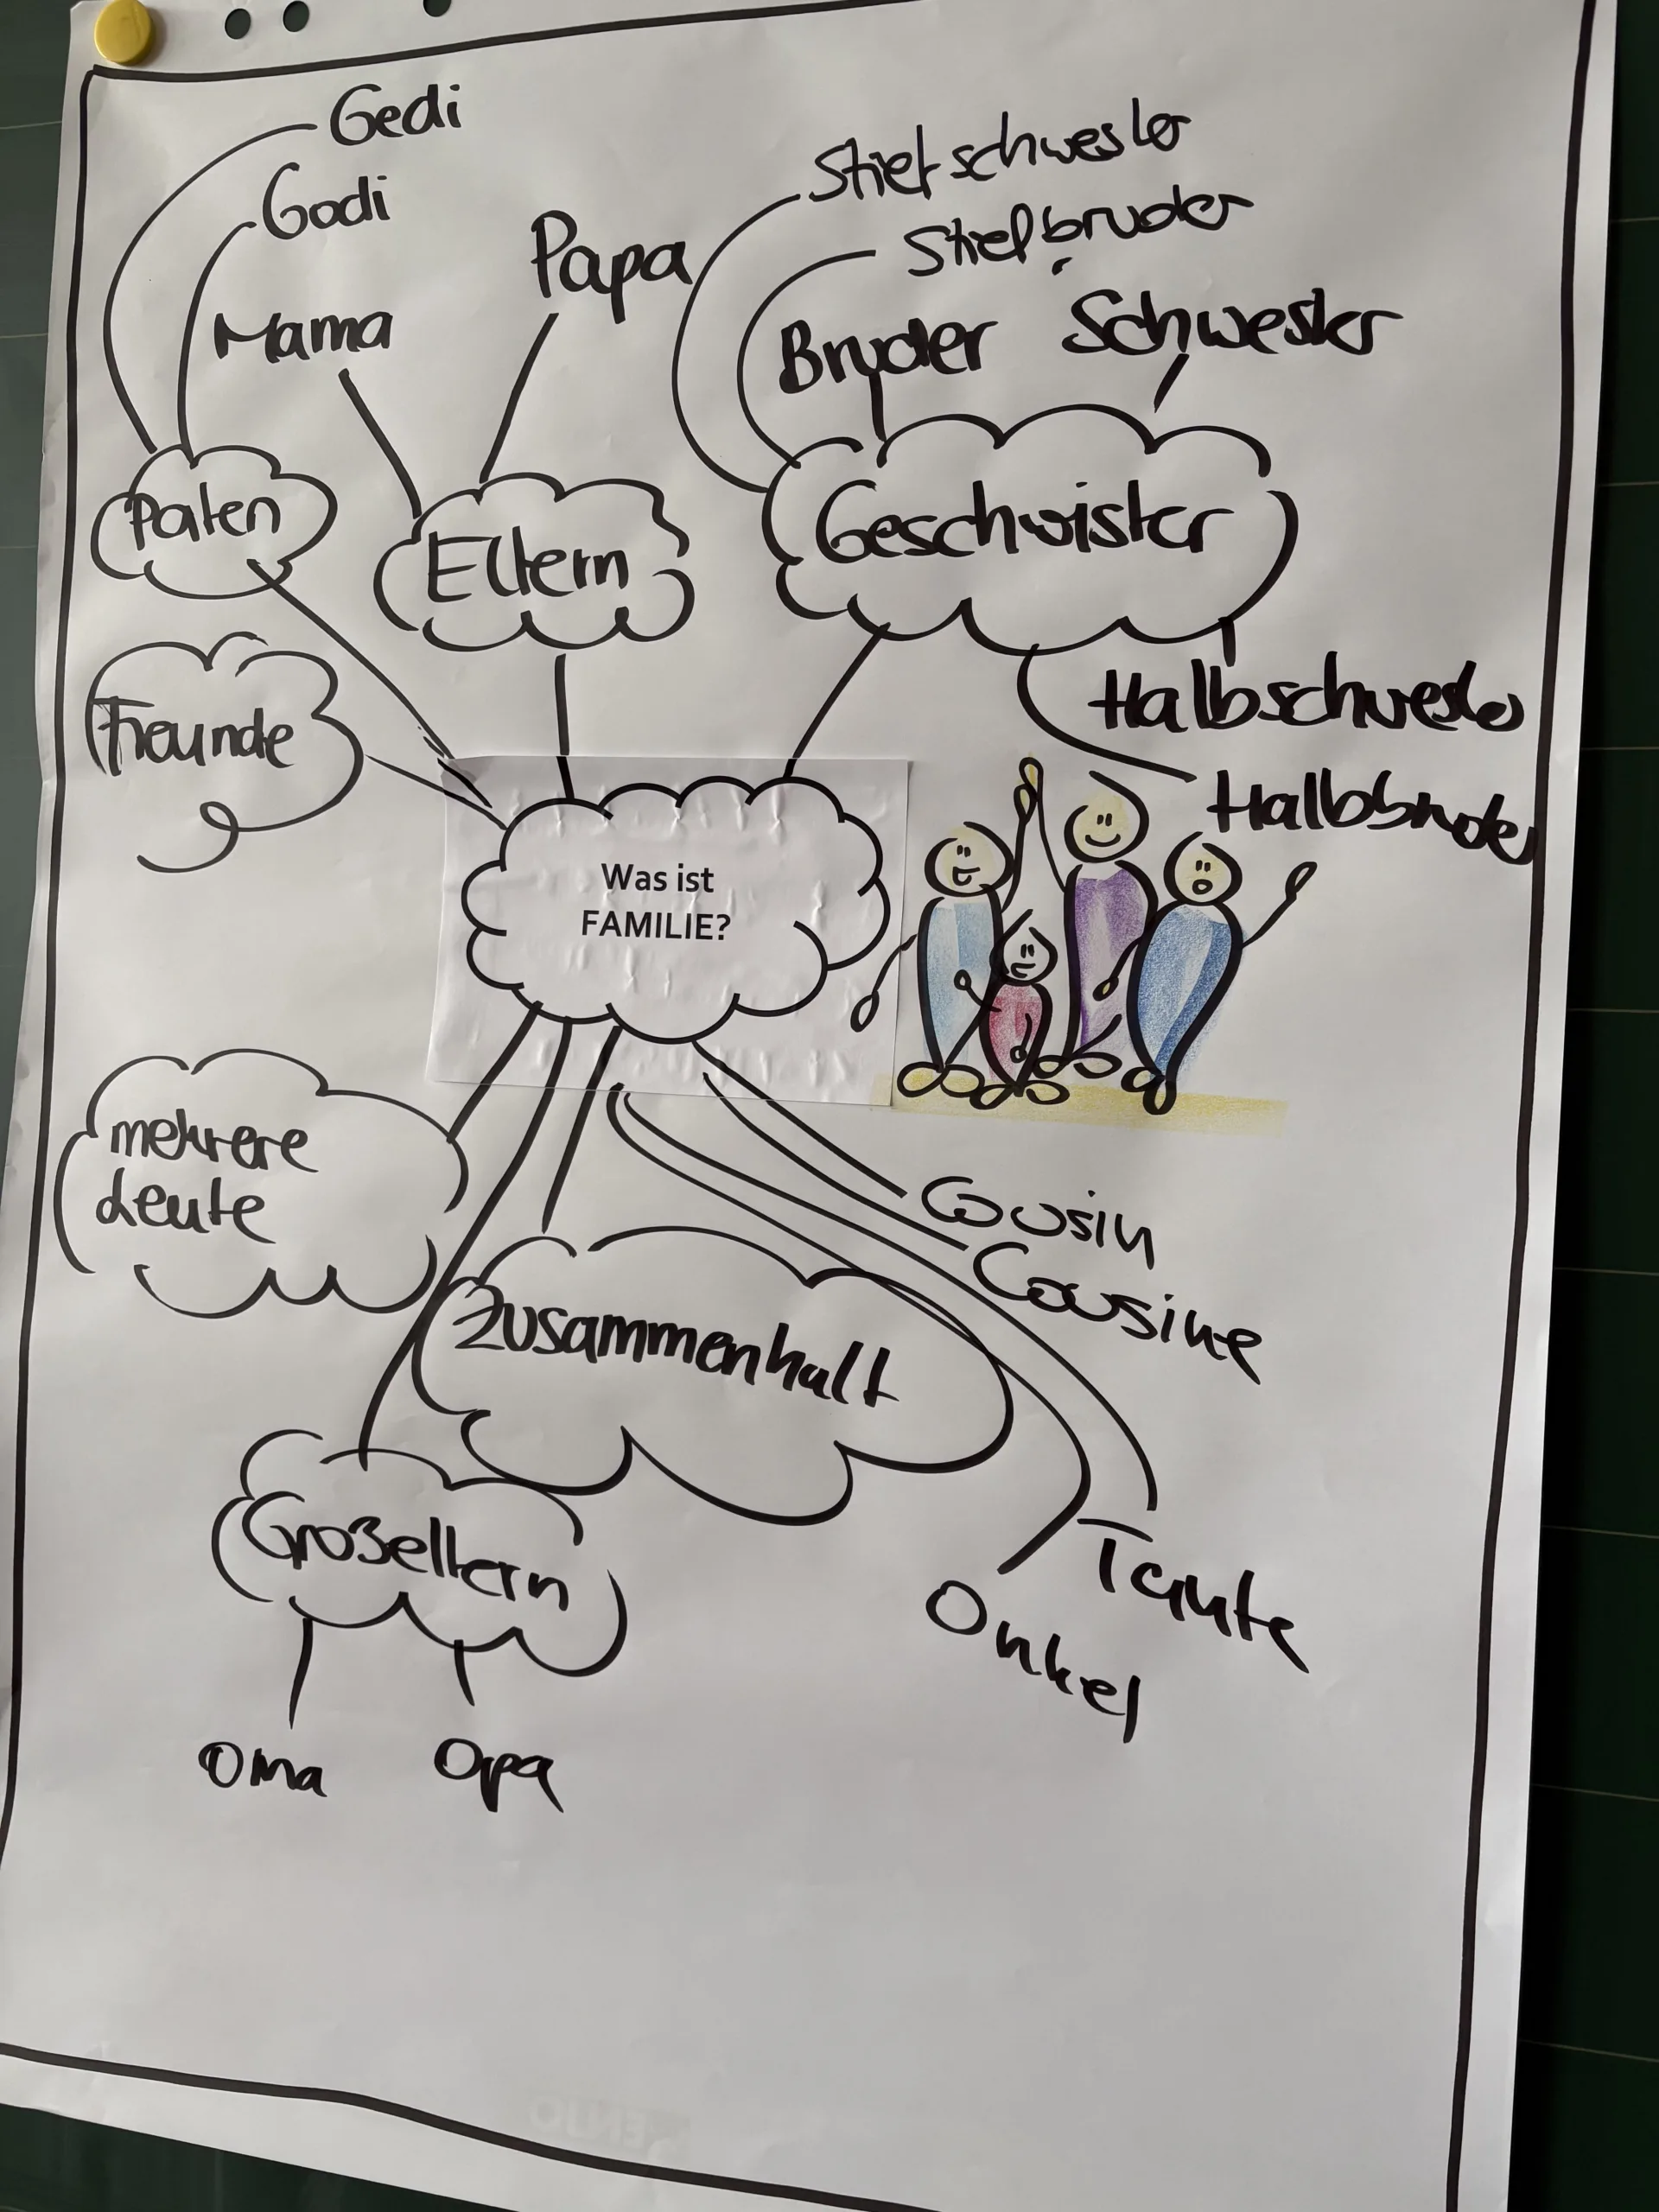 Gedi
Godi
Mama
Papa
Stiefschwester
Stiefbruder
Bruder
Schwester
Paten
Eltern
Geschwister
Freunde
Halbschwester
Halbbruder
Was ist
FAMILIE?
mehrere
Leute
Zusammenhalt
Cousin
Cousine
Großeltern
Tante
Onkel
Oma
Opa